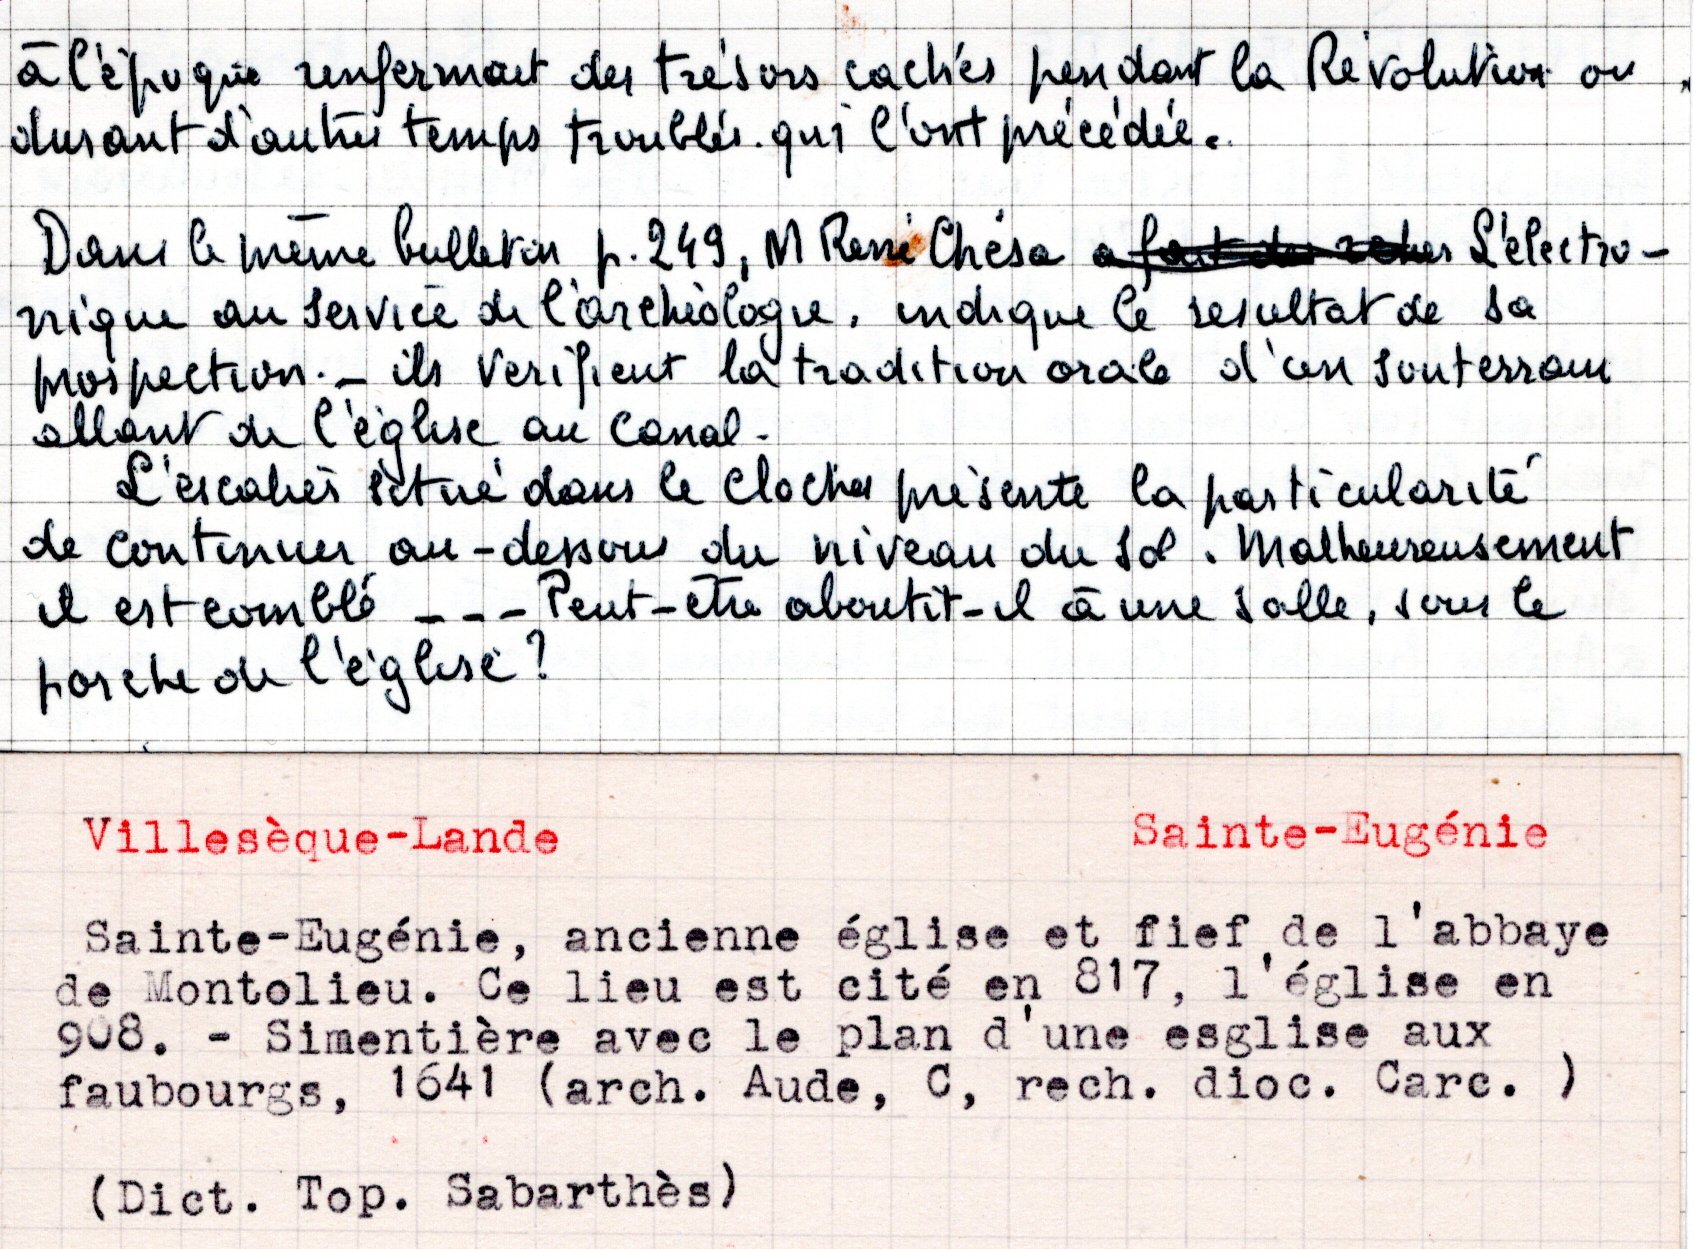 à l'époque renfermait des trésors cachés pendant la Révolution ou
durant d'autres temps troublés. qui l'ont précédée.
Dans le même bulletin p. 249, M René Chésa a fait des L'électro-
nique au service de l'archéologie, indique le resultat de sa
prospection. - ils verifient la tradition orale d'un souterrain
allant de l'église au Canal.
L'escalier situé dans le clocher présente la particularité
de continuer au-dessous du niveau du sol. Malheureusement
il est comblé --- Peut-être aboutit-il à une salle, sous le
porche de l'église?
Villesèque-Lande Sainte-Eugénie
Sainte-Eugénie, ancienne église et fief de l'abbaye
de Montolieu. Ce lieu est cité en 817, l'église en
908. - Simentière avec le plan d'une esglise aux
faubourgs, 1641 (arch. Aude, C, rech. dioc. Carc. )
(Dict. Top. Sabarthès)